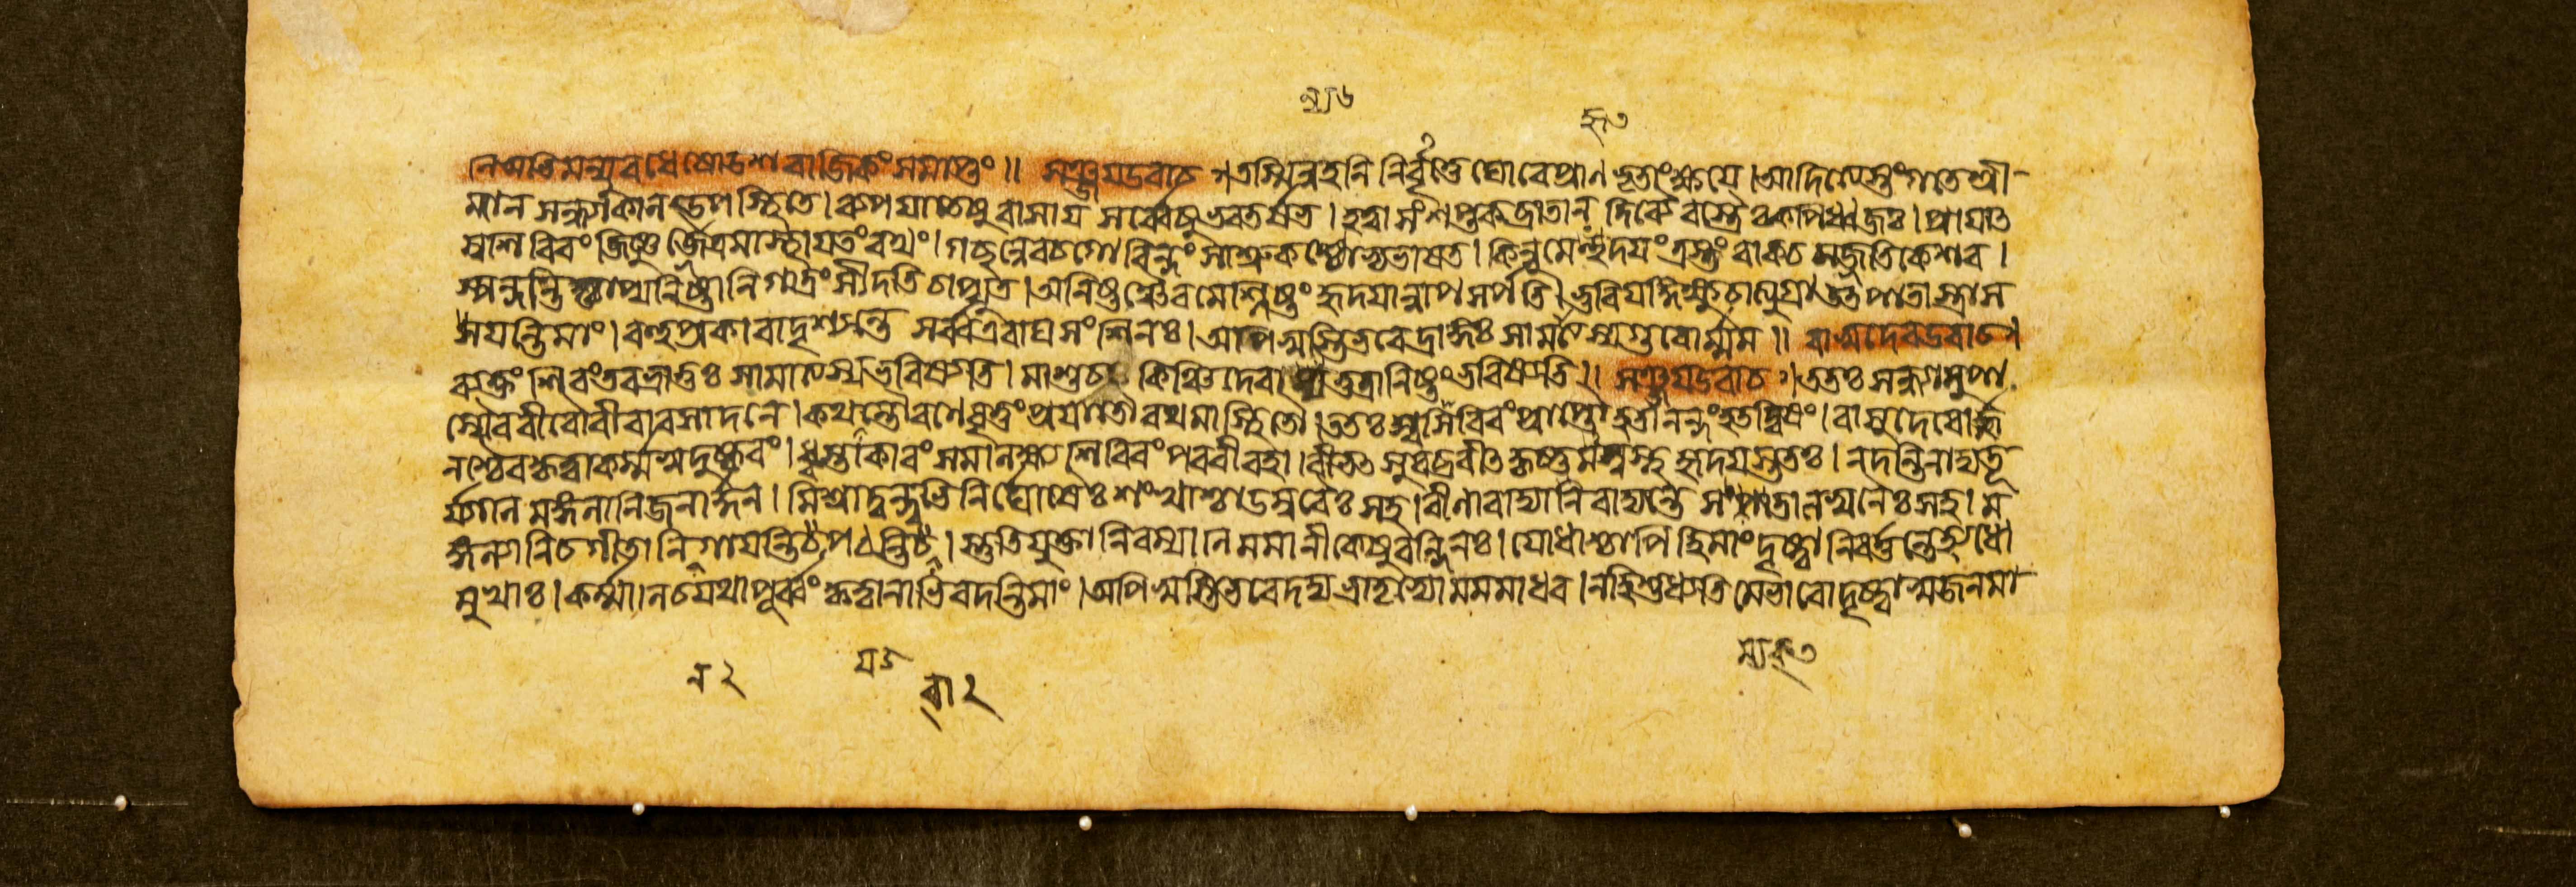 ন্য৬
হৃত
নি অভিমন্যুবধে ষোডশ রাজিকং সমাপ্তং॥ সঞ্জয উবাচ। তস্মিন্নহনি নির্বৃত্তে ঘোরে প্রাণভৃতাংক্ষযে। আদিত্যেস্তংগতে শ্রী-
মান সন্ধ্যাকাল উপস্থিতে। ব্যপযাতেষু বাসায সর্ব্বেষু ভরতর্ষভ। হত্বা সংশপ্তকব্রাতান্ দিব্যৈরস্ত্রৈঃ কপিধ্বজঃ। প্রাযাত
স্বশিবিরং জিষ্ণুর্জৈত্রমাস্থায তং রথং। গচ্ছন্নেবচ গোবিন্দং সাশ্রুকণ্ঠোভ্যভাষত। কিন্নু মে হৃদযং ত্রস্তং বাক্চ সজ্জতি কেশব।
স্পন্দন্তি চাপ্যনিষ্টানি গাত্রং সীদতি চাপ্যুত। অনিষ্টঞ্চৈব মে শ্লিষ্টং হৃদযান্নাপসর্পতি। ভুবি যদ্দিক্ষুচাপ্যুগ্রা উৎপাতাস্ত্রাস
সযন্তি মাং। বহুপ্রকারা দৃশ্যন্তে সর্ব্ব এবাঘশংসিনঃ। অপি স্বস্তি ভবেদ্রাজ্ঞঃ সামাত্যস্য গুরোর্ম্মম॥ বাসুদেব উবাচ।
ব্যক্তং শিবং তব ভ্রাতুঃ সামাত্যস্য ভবিষ্যতি। মা শুচঃ কিঞ্চিদেবা তত্রানিষ্টং ভবিষ্যতি॥ সঞ্জয উবাচ। ততঃ সন্ধ্যামুপা
স্যৈব বীরৌ বীরাবসাদনে। কথযন্তৌ রণেবৃত্তং প্রযাতৌ রথমাস্থিতৌ। ততঃ স্বশিবিরং প্রাপ্তৌ হতানন্দং হতত্বিষং। বাসুদেবোর্জ্জু
নশ্চৈব কৃত্বা কর্ম্ম সুদুষ্করং। ধ্বস্তাকারং সমালক্ষ্য শিবিরং পরবীরহা। বীভৎসুরব্রবীৎ কৃষ্ণমস্বস্থহৃদযস্ততঃ। নদন্তি নাদ্য তূ
র্যাণি মঙ্গল্যানি জনার্দ্দন। মিশ্রা দুন্দুভিনির্ঘোষৈঃ শংখাশ্চাডম্বরৈঃ সহ। বীণা বাদ্যানি বাদ্যন্তে সংপাতালস্বনৈঃ সহ। ম
ঙ্গল্যানিচ গীতানি নগাযন্তি পঠন্তিচ। স্তুতিযুক্তানি রম্যাণি মমানীকেষু বন্দিনঃ। যোধাশ্চাপিহি মাং দৃষ্ট্বা নিবর্ত্তন্তে হ্যধো
মুখাঃ। কর্ম্মাণিচ যথাপূর্ব্বং কৃত্বা নাভিবদন্তি মাং। অপি স্বস্তি ভবেদদ্য ভ্রাতৃভ্যো মম মাধব। নহি শুধ্যতি মে ভাবো দৃষ্ট্বা স্বজনমা
ন ২
য ৫
রা ২